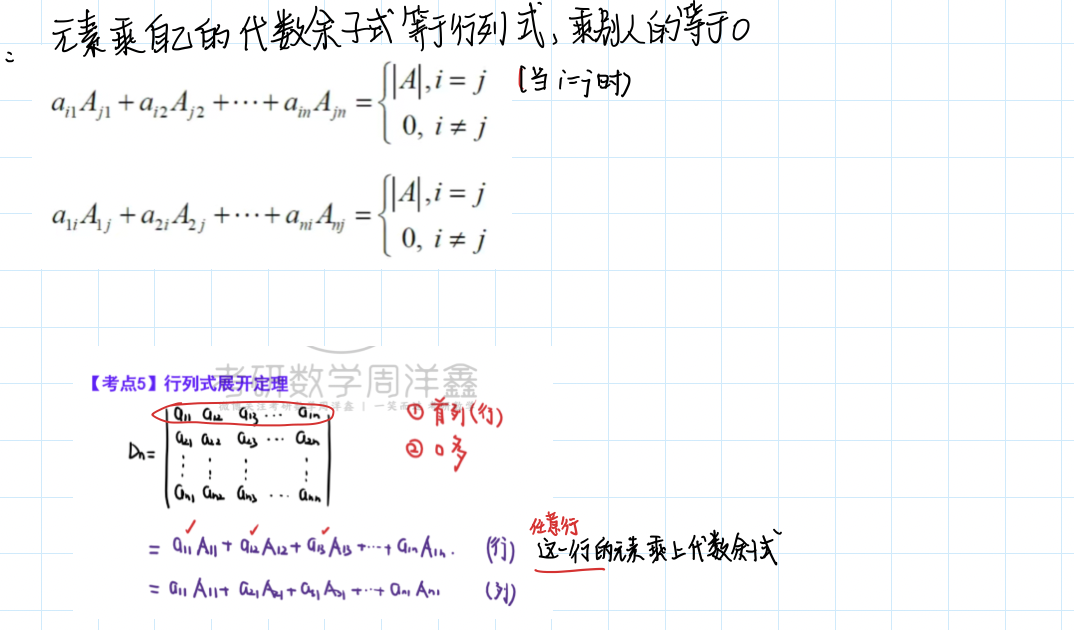 元素乘自己的代数余子式等于行列式，乘别人的等于0
a_{i1}A_{j1} + a_{i2}A_{j2} + ⋯ + a_{in}A_{jn} = { |A|, i = j (当 i=j 时)
0, i ≠ j
a_{1i}A_{1j} + a_{2i}A_{2j} + ⋯ + a_{ni}A_{nj} = { |A|, i = j
0, i ≠ j
考研数学周洋鑫
【考点5】行列式展开定理
a11 a12 a13 ⋯ a1n ① 首列(行)
Dn= a21 a22 a23 ⋯ a2n ② 0多
⋮ ⋮ ⋮ ⋮
an1 an2 an3 ⋯ ann
任意行
= a11 A11 + a12 A12 + a13 A13 + ⋯ + a1n A1n. (行) 这一行的元素乘上代数余子式
= a11 A11 + a21 A21 + a31 A31 + ⋯ + an1 An1 (列)